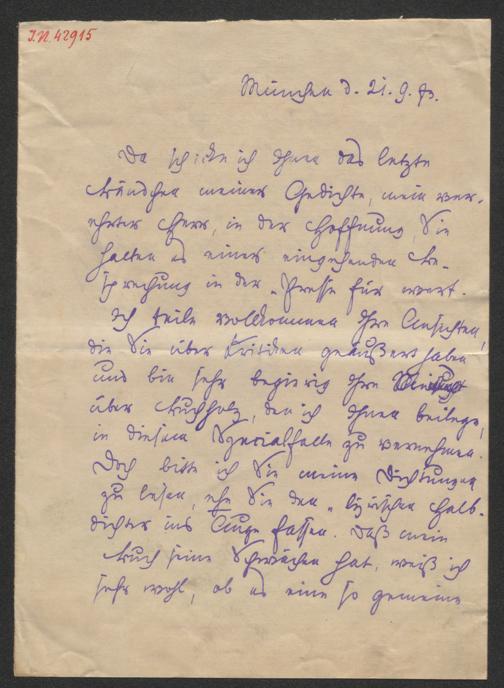 J.N. 42915
München d. 21.9.93.
Da schicke ich Ihnen das letzte
Bändchen meiner Gedichte, mein ver-
ehrter Herr, in der Hoffnung, Sie
halten es einer eingehenden Be-
sprechung in der „Presse für wert.
Ich teile vollkommen Ihre Ansichten,
die Sie über Kritiken geäußert haben
und bin sehr begierig Ihre
über Buchholz, den ich Ihnen beilege,
in diesem Spezialfalle zu vernehmen.
Doch bitte ich Sie meine Dichtungen
zu lesen, ehe Sie den „lyrischen Halb-
dichter ins Auge fassen. Daß mein
Buch seine Schwächen hat, weiß ich
sehr wohl, ob es eine so gemeine